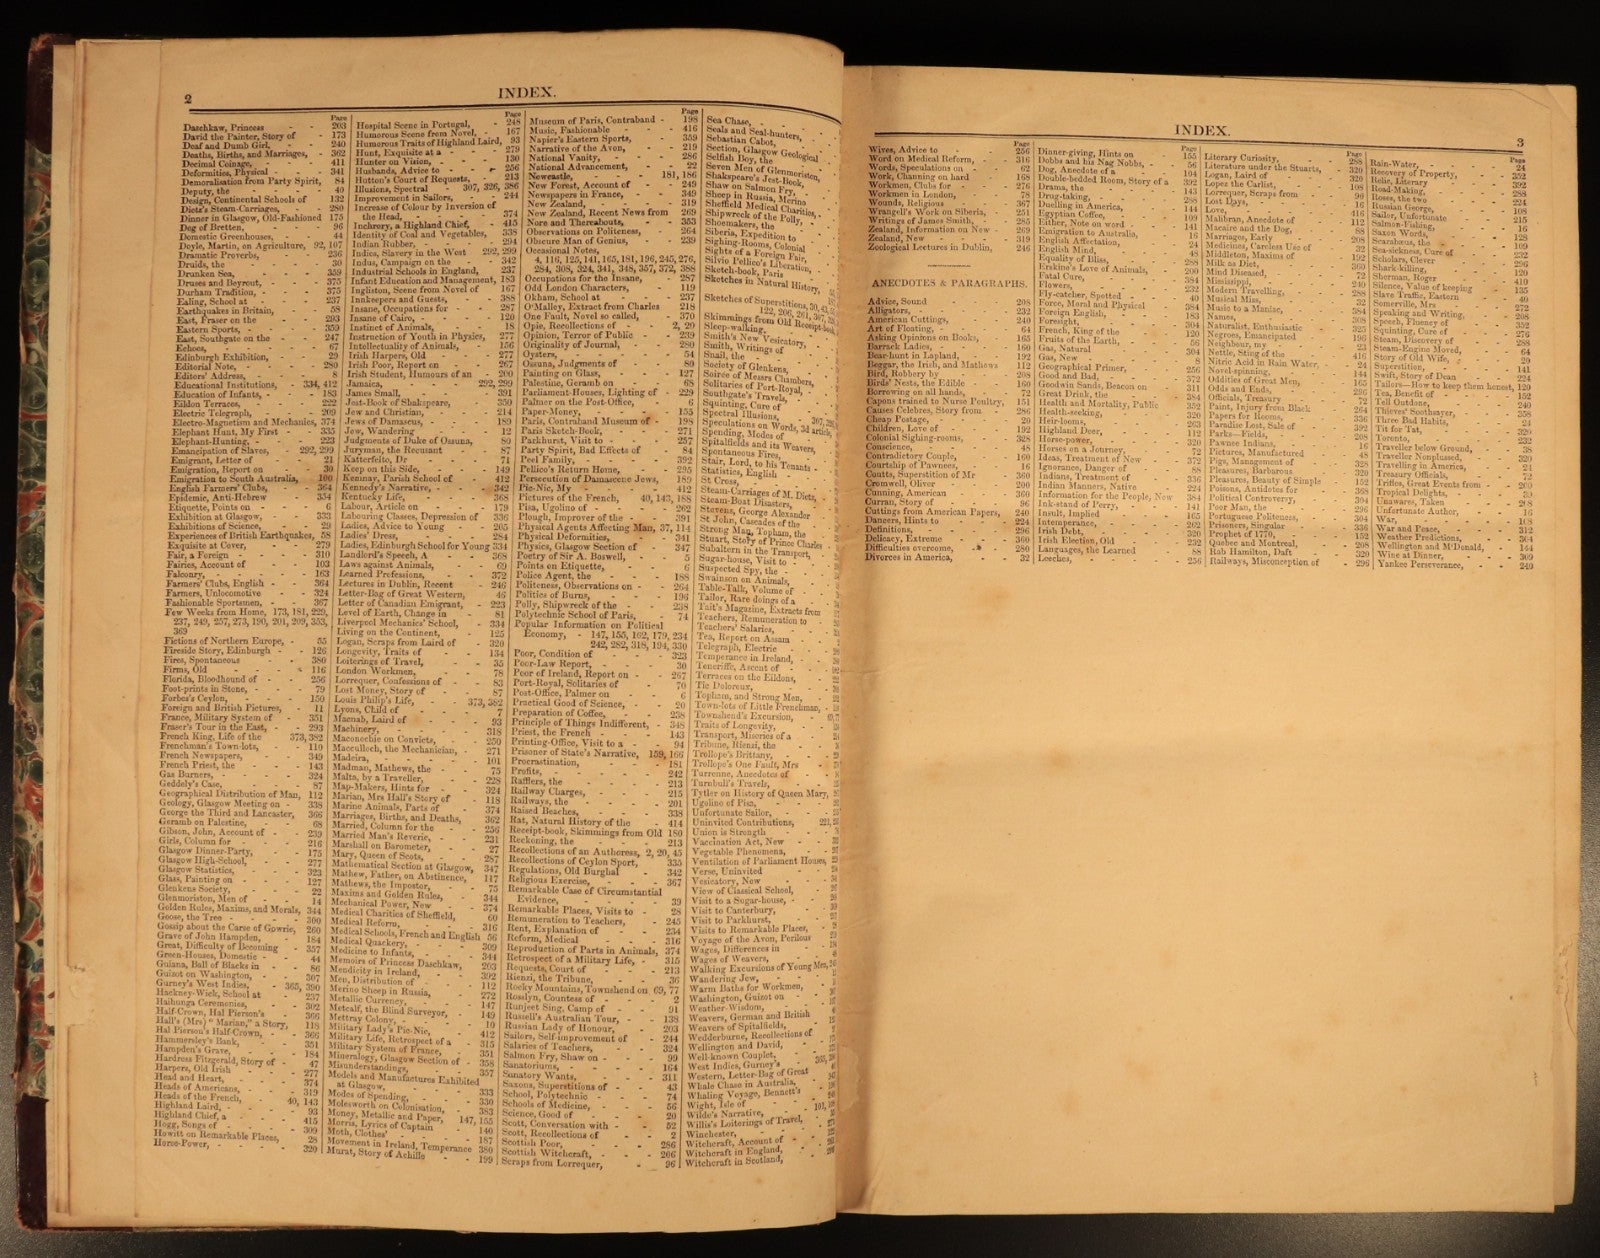 2
INDEX.
Page
Daschkaw, Princess - - 203
David the Painter, Story of - 173
Deaf and Dumb Girl, - - 240
Deaths, Births, and Marriages, - 362
Decimal Coinage, - - 411
Deformities, Physical - - 341
Demoralisation from Party Spirit, 84
Deputy, the - - 40
Design, Continental Schools of 132
Dietz's Steam-Carriages, - 280
Dinner in Glasgow, Old-Fashioned 175
Dog of Bretten, - - 96
Domestic Greenhouses, - - 44
Doyle, Martin, on Agriculture, 92, 107
Dramatic Proverbs, - - 236
Druids, the - - 30
Drunken Sea, - - 359
Druses and Beyrout, - - 375
Durham Tradition, - - 375
Ealing, School at - - 237
Earthquakes in Britain, - 58
East, Fraser on the - - 293
Eastern Sports, - - 359
East, Southgate on the - - 247
Echoes, - - 67
Edinburgh Exhibition, - - 29
Editorial Note, - - 280
Editors' Address, - - 8
Educational Institutions, - 334, 412
Education of Infants, - - 183
Eildon Terraces, - - 222
Electric Telegraph, - - 209
Electro-Magnetism and Mechanics, 374
Elephant Hunt, My First - 335
Elephant-Hunting, - - 223
Emancipation of Slaves, 292, 299
Emigrant, Letter of - - 21
Emigration, Report on - - 30
Emigration to South Australia, 100
English Farmers' Clubs, - 364
Epidemic, Anti-Hebrew - 354
Etiquette, Points on - - 6
Exhibition at Glasgow, - 333
Exhibitions of Science, - - 29
Experiences of British Earthquakes, 58
Exquisite at Cover, - - 279
Fair, a Foreign - - 310
Fairies, Account of - - 103
Falconry, - - 163
Farmers' Clubs, English - - 364
Farmers, Unlocomotive - 324
Fashionable Sportsmen, - - 367
Few Weeks from Home, 173, 181, 229,
237, 249, 257, 273, 190, 201, 209, 353,
369
Fictions of Northern Europe, - 55
Fireside Story, Edinburgh - - 126
Fires, Spontaneous - - 380
Firms, Old - - 116
Florida, Bloodhound of - - 256
Foot-prints in Stone, - - 79
Forbes's Ceylon, - - 150
Foreign and British Pictures, - 11
France, Military System of - 351
Fraser's Tour in the East, - 293
French King, Life of the 373, 382
Frenchman's Town-lots, - 110
French Newspapers, - - 349
French Priest, the - - 143
Gas Burners, - - 324
Geddely's Case, - - 87
Geographical Distribution of Man, 112
Geology, Glasgow Meeting on - 338
George the Third and Lancaster, 366
Geramb on Palestine, - - 68
Gibson, John, Account of - - 239
Girls, Column for - - 216
Glasgow Dinner-Party, - - 175
Glasgow High-School, - - 277
Glasgow Statistics, - - 323
Glass, Painting on - - 127
Glenkens Society, - - 22
Glenmoriston, Men of - - 14
Golden Rules, Maxims, and Morals, 344
Goose, the Tree - - 300
Gossip about the Carse of Gowrie, 260
Grave of John Hampden, - 184
Great, Difficulty of Becoming - 357
Green-Houses, Domestic - - 44
Guiana, Ball of Blacks in - 86
Guizot on Washington, - - 307
Gurney's West Indies, - 365, 390
Hackney-Wick, School at - 237
Haihunga Ceremonies, - - 302
Half-Crown, Hal Pierson's - 366
Hall's (Mrs) "Marian," a Story, 118
Hal Pierson's Half-Crown, - - 366
Hammersley's Bank, - - 351
Hampden's Grave, - - 184
Hardress Fitzgerald, Story of - 47
Harpers, Old Irish - - 277
Head and Heart, - - 374
Heads of Americans, - - 319
Heads of the French, - 40, 143
Highland Laird, - - 93
Highland Chief, a - - 415
Hogg, Songs of - - 309
Howitt on Remarkable Places, 28
Horse-Power, - - 320
Page
Hospital Scene in Portugal, - 248
Humorous Scene from Novel, - 167
Humorous Traits of Highland Laird, 93
Hunt, Exquisite at a - - 279
Hunter on Vision, - - 130
Husbands, Advice to - - 256
Hutton's Court of Requests, - 213
Illusions, Spectral 307, 326, 386
Improvement in Sailors, - 244
Increase of Colour by Inversion of
the Head, - - 374
Inchrory, a Highland Chief, - 415
Identity of Coal and Vegetables, 338
Indian Rubber, - - 294
Indies, Slavery in the West 292, 299
Indus, Campaign on the - 342
Industrial Schools in England, 237
Infant Education and Management, 183
Ingliston, Scene from Novel of 167
Innkeepers and Guests, - - 388
Insane, Occupations for - 287
Insane of Cairo, - - 120
Instinct of Animals, - - 18
Instruction of Youth in Physics, 277
Intellectuality of Animals, - 156
Irish Harpers, Old - - 277
Irish Poor, Report on - - 267
Irish Student, Humours of an - 200
Jamaica, - - 292, 299
James Small, - - 391
Jest-Book of Shakspeare, - 359
Jew and Christian, - - 214
Jews of Damascus, - - 189
Jew, Wandering - - 12
Judgments of Duke of Ossuna, 80
Juryman, the Recusant - 87
Katterfelto, Dr - - 71
Keep on this Side, - - 149
Kemnay, Parish School of - 412
Kennedy's Narrative, - - 342
Kentucky Life, - - 368
Labour, Article on - - 179
Labouring Classes, Depression of - 336
Ladies, Advice to Young - 205
Ladies' Dress, - - 284
Ladies, Edinburgh School for Young 334
Landlord's Speech, A - - 368
Laws against Animals, - - 69
Learned Professions, - - 372
Lectures in Dublin, Recent - 246
Letter-Bag of Great Western, 46
Letter of Canadian Emigrant, - 223
Level of Earth, Change in - 81
Liverpool Mechanics' School, - 334
Living on the Continent, - 125
Logan, Scraps from Laird of - 320
Longevity, Traits of - - 134
Loiterings of Travel, - - 35
London Workmen, - - 78
Lorrequer, Confessions of - 83
Lost Money, Story of - - 87
Louis Philip's Life, - 373, 382
Lyons, Child of - - 7
Macnab, Laird of - - 93
Machinery, - - 318
Maconochie on Convicts, - 250
Macculloch, the Mechanician, - 271
Madeira, - - 101
Madman, Mathews, the - - 75
Malta, by a Traveller, - - 228
Map-Makers, Hints for - - 324
Marian, Mrs Hall's Story of - 118
Marine Animals, Parts of - 374
Marriages, Births, and Deaths, 362
Married, Column for the - 256
Married Man's Reverie, - - 231
Marshall on Barometer, - 27
Mary, Queen of Scots, - - 287
Mathematical Section at Glasgow, 347
Mathew, Father, on Abstinence, 117
Mathews, the Impostor, - 75
Maxims and Golden Rules, - 344
Mechanical Power, New - 374
Medical Charities of Sheffield, 60
Medical Reform, - - 316
Medical Schools, French and English 56
Medical Quackery, - - 309
Medicine to Infants, - - 344
Memoirs of Princess Daschkaw, 203
Mendicity in Ireland, - - 392
Men, Distribution of - - 112
Merino Sheep in Russia, - 272
Metallic Currency, - - 147
Metcalf, the Blind Surveyor, - 149
Mettray Colony, - - 10
Military Lady's Pic-Nic, - 412
Military Life, Retrospect of a - 315
Military System of France, - 351
Mineralogy, Glasgow Section of - 358
Misunderstandings, - - 357
Models and Manufactures Exhibited
at Glasgow, - - 333
Modes of Spending, - - 330
Molesworth on Colonisation, - 383
Money, Metallic and Paper, 147, 155
Morris, Lyrics of Captain - 140
Moth, Clothes' - - 187
Movement in Ireland, Temperance 380
Murat, Story of Achille - - 199
Page
Museum of Paris, Contraband - 198
Music, Fashionable - - 416
Napier's Eastern Sports, - 359
Narrative of the Avon, - - 219
National Vanity, - - 286
National Advancement, - - 22
Newcastle, - - 181, 186
New Forest, Account of - 249
Newspapers in France, - - 349
New Zealand, - - 319
New Zealand, Recent News from 269
Now and Thereabouts, - - 353
Observations on Politeness, - 264
Obscure Man of Genius, - - 239
Occasional Notes,
4, 116, 125, 141, 165, 181, 196, 245, 276,
284, 308, 324, 341, 348, 357, 372, 388
Occupations for the Insane, - 287
Odd London Characters, - 119
Okham, School at - - 237
O'Malley, Extract from Charles - 218
One Fault, Novel so called, - 370
Opie, Recollections of - - 2, 29
Opinion, Terror of Public - 239
Originality of Journal, - - 280
Oysters, - - 54
Ossuna, Judgments of - - 80
Painting on Glass, - - 127
Palestine, Geramb on - - 68
Parliament-Houses, Lighting of 229
Palmer on the Post-Office, - 6
Paper-Money, - - 155
Paris, Contraband Museum of - 198
Paris Sketch-Book, - - 271
Parkhurst, Visit to - - 257
Party Spirit, Bad Effects of - 84
Peel Family, - - 392
Pellico's Return Home, - - 295
Persecution of Damascene Jews, 189
Pic-Nic, My - - 412
Pictures of the French, - 40, 143, 188
Pisa, Ugolino of - - 262
Plough, Improver of the - - 391
Physical Agents Affecting Man, 37, 114
Physical Deformities, - - 341
Physics, Glasgow Section of - 347
Poetry of Sir A. Boswell, - 5
Points on Etiquette, - - 6
Police Agent, the - - 188
Politeness, Observations on - 264
Politics of Burns, - - 196
Polly, Shipwreck of the - 238
Polytechnic School of Paris, - 74
Popular Information on Political
Economy, - 147, 155, 162, 179, 234
242, 282, 318, 194, 330
Poor, Condition of - - 323
Poor-Law Report, - - 30
Poor of Ireland, Report on - 267
Port-Royal, Solitaries of - 70
Post-Office, Palmer on - - 6
Practical Good of Science, - 20
Preparation of Coffee, - - 238
Principle of Things Indifferent, - 348
Priest, the French - - 143
Printing-Office, Visit to a - 94
Prisoner of State's Narrative, 159, 166
Procrastination, - - 181
Profits, - - 242
Rafflers, the - - 213
Railway Charges, - - 215
Railways, the - - 201
Raised Beaches, - - 338
Rat, Natural History of the - 414
Receipt-book, Skimmings from Old 180
Reckoning, the - - 213
Recollections of an Authoress, 2, 20, 45
Recollections of Ceylon Sport, 335
Regulations, Old Burghal - 342
Religious Exercise, - - 367
Remarkable Case of Circumstantial
Evidence, - - 39
Remarkable Places, Visits to - 28
Remuneration to Teachers, - 245
Rent, Explanation of - - 234
Reform, Medical - - 316
Reproduction of Parts in Animals, 374
Retrospect of a Military Life, - 315
Requests, Court of - - 213
Rienzi, the Tribune, - - 36
Rocky Mountains, Townshend on 69, 77
Rosslyn, Countess of - - 2
Runjeet Sing, Camp of - - 91
Russell's Australian Tour, - 138
Russian Lady of Honour, - 203
Sailors, Self-improvement of - 244
Salaries of Teachers, - - 324
Salmon Fry, Shaw on - - 99
Sanatoriums, - - 164
Sanatory Wants, - - 311
Saxons, Superstitions of - - 43
School, Polytechnic - - 74
Schools of Medicine, - - 56
Science, Good of - - 20
Scott, Conversation with - - 52
Scott, Recollections of - - 2
Scottish Poor, - - 286
Scottish Witchcraft, - - 266
Scraps from Lorrequer, - - 96
Sea Chase, - -
Seals and Seal-hunters, -
Sebastian Cabot, -
Section, Glasgow Geological -
Selfish Boy, the -
Seven Men of Glenmoriston,
Shakspeare's Jest-Book,
Shaw on Salmon Fry,
Sheep in Russia, Merino
Sheffield Medical Charities, -
Shipwreck of the Polly, -
Shoemakers, the -
Siberia, Expedition to
Sighing-Rooms, Colonial
Sights of a Foreign Fair,
Silvio Pellico's Liberation,
Sketch-book, Paris
Sketches in Natural History,
Sketches of Superstitions, 30, 43,
122, 206, 261, 307,
Skimmings from Old Receipt-book,
Sleep-walking,
Smith's New Vesicatory,
Smith, Writings of
Snail, the
Society of Glenkens,
Soirée of Messrs Chambers,
Solitaries of Port-Royal,
Southgate's Travels,
Squinting, Cure of
Spectral Illusions,
Speculations on Words, 3d article,
Spending, Modes of
Spitalfields and its Weavers,
Spontaneous Fires,
Stair, Lord, to his Tenants -
Statistics, English
St Cross,
Steam-Carriages of M. Dietz,
Steam-Boat Disasters,
Stevens, George Alexander
St John, Cascades of the
Strong Man, Topham, the
Stuart, Story of Prince Charles
Subaltern in the Transport,
Sugar-house, Visit to -
Suspected Spy, the -
Swainson on Animals,
Table-Talk, Volume of
Tailor, Rare doings of a
Tait's Magazine, Extracts from
Teachers, Remuneration to
Teachers' Salaries,
Tea, Report on Assam
Telegraph, Electric
Temperance in Ireland, -
Teneriffe, Ascent of
Terraces on the Eildons,
Tic Doloreux,
Topham, and Strong Men,
Town-lots of Little Frenchman,
Townshend's Excursion,
Traits of Longevity,
Transport, Miseries of a
Tribune, Rienzi, the
Trollope's Brittany,
Trollope's One Fault, Mrs
Turenne, Anecdotes of
Turnbull's Travels,
Tytler on History of Queen Mary,
Ugolino of Pisa,
Unfortunate Sailor,
Uninvited Contributions,
Union is Strength
Vaccination Act, New
Vegetable Phenomena,
Ventilation of Parliament Houses,
Verse, Uninvited
Vesicatory, New
View of Classical School,
Visit to a Sugar-house, -
Visit to Canterbury,
Visit to Parkhurst,
Visits to Remarkable Places,
Voyage of the Avon, Perilous
Wages, Differences in
Wages of Weavers,
Walking Excursions of Young Men,
Wandering Jew,
Warm Baths for Workmen,
Washington, Guizot on
Weather-Wisdom,
Weavers, German and British
Weavers of Spitalfields,
Wedderburne, Recollections of
Wellington and David,
Well-known Couplet,
West Indies, Gurney's
Western, Letter-Bag of Great
Whale Chase in Australia,
Whaling Voyage, Bennett's
Wight, Isle of
Wilde's Narrative,
Willis's Loiterings of Travel,
Winchester,
Witchcraft, Account of
Witchcraft in England,
Witchcraft in Scotland,
INDEX.
3
Page
Wives, Advice to - - 256
Word on Medical Reform, - 316
Words, Speculations on - 62
Work, Channing on hard - 168
Workmen, Clubs for - - 276
Workmen in London, - - 78
Wounds, Religious - - 367
Wrangell's Work on Siberia, - 251
Writings of James Smith, - 285
Zealand, Information on New - 269
Zealand, New - - 319
Zoological Lectures in Dublin, 246
ANECDOTES & PARAGRAPHS.
Advice, Sound - - 208
Alligators, - - 232
American Cuttings, - - 240
Art of Floating, - - 64
Asking Opinions on Books, - 165
Barrack Ladies, - - 160
Bear-hunt in Lapland, - - 192
Beggar, the Irish, and Mathews 112
Bird, Robbery by - - 208
Birds' Nests, the Edible - 160
Borrowing on all hands, - 72
Capons trained to Nurse Poultry, 151
Causes Celebres, Story from - 286
Cheap Postage, - - 20
Children, Love of - - 192
Colonial Sighing-rooms, - 328
Conscience, - - 48
Contradictory Couple, - - 160
Courtship of Pawnees, - - 16
Coutts, Superstition of Mr - 360
Cromwell, Oliver - - 200
Cunning, American - - 360
Curran, Story of - - 96
Cuttings from American Papers, 240
Dancers, Hints to - - 224
Definitions, - - 296
Delicacy, Extreme - - 360
Difficulties overcome, - - 280
Divorces in America, - - 32
Page
Dinner-giving, Hints on - 155
Dobbs and his Nag Nobbs, - 56
Dog, Anecdote of a - - 104
Double-bedded Room, Story of a 392
Drama, the - - 143
Drug-taking, - - 288
Duelling in America, - - 144
Egyptian Coffee, - - 109
Either, Note on word - - 141
Emigration to Australia, - 16
English Affectation, - - 24
English Mind, - - 48
Equality of Bliss, - - 288
Erskine's Love of Animals, - 200
Fatal Cure, - - 384
Flowers, - - 232
Fly-catcher, Spotted - - 40
Force, Moral and Physical - 384
Foreign English, - - 183
Foresight, - - 304
French, King of the - - 120
Fruits of the Earth, - - 56
Gas, Natural - - 304
Gas, New - - 8
Geographical Primer, - - 256
Good and Bad, - - 372
Goodwin Sands, Beacon on - 311
Great Drink, the - - 384
Health and Mortality, Public 352
Health-seeking, - - 320
Heir-looms, - - 263
Highland Deer, - - 112
Horse-power, - - 320
Horses on a Journey, - - 72
Ideas, Treatment of New - 372
Ignorance, Danger of - - 88
Indians, Treatment of - - 336
Indian Manners, Native - 224
Information for the People, New 384
Ink-stand of Perry, - - 141
Insult, Implied - - 165
Intemperance, - - 262
Irish Debt, - - 320
Irish Election, Old - - 252
Languages, the Learned - 88
Leeches, - - 256
Page
Literary Curiosity, - - 288
Literature under the Stuarts, - 320
Logan, Laird of - - 320
Lopez the Carlist, - - 108
Lorrequer, Scraps from - 96
Lost Days, - - 16
Love, - - 416
Malibran, Anecdote of - - 112
Macaire and the Dog, - - 88
Marriages, Early - - 208
Medicines, Careless Use of - 32
Middleton, Maxims of - - 192
Milk as Diet, - - 360
Mind Diseased, - - 112
Mississippi, - - 240
Modern Travelling, - - 288
Musical Miss, - - 32
Music to a Maniac, - - 384
Names, - - 208
Naturalist, Enthusiastic - 325
Negroes, Emancipated - - 196
Neighbour, my - - 23
Nettle, Sting of the - - 416
Nitric Acid in Rain Water, - 24
Novel-spinning, - - 144
Oddities of Great Men, - - 165
Odds and Ends, - - 296
Officials, Treasury - - 72
Paint, Injury from Black - 264
Papers for Rooms, - - 336
Paradise Lost, Sale of - - 392
Parks—Fields, - - 208
Pawnee Indians, - - 16
Pictures, Manufactured - 48
Pigs, Management of - - 328
Pleasures, Barbarous - - 320
Pleasures, Beauty of Simple 152
Poisons, Antidotes for - - 368
Political Controversy, - - 304
Poor Man, the - - 296
Portuguese Politeness, - - 304
Prisoners, Singular - - 336
Prophet of 1770, - - 152
Quebec and Montreal, - - 208
Rab Hamilton, Daft - - 320
Railways, Misconception of - 296
Page
Rain-Water, - - 24
Recovery of Property, - - 352
Relic, Literary - - 392
Road-Making, - - 288
Roses, the two - - 224
Russian George, - - 108
Sailor, Unfortunate - - 215
Salmon-Fishing, - - 16
Saxon Words, - - 128
Scarabæus, the - - 109
Sea-sickness, Cure of - - 232
Scholars, Clever - - 296
Shark-killing, - - 120
Sherman, Roger - - 410
Silence, Value of keeping - 135
Slave Traffic, Eastern - - 40
Somerville, Mrs - - 32
Speaking and Writing, - 272
Speech, Fluency of - - 208
Squinting, Cure of - - 352
Steam, Discovery of - - 279
Steam-Engine Moved, - - 288
Story of Old Wife, - - 64
Superstition, - - 29
Swift, Story of Dean - - 141
Tailors—How to keep them honest, 120
Tea, Benefit of - - 152
Tell Outdone, - - 240
Thieves' Soothsayer, - - 358
Three Bad Habits, - - 24
Tit for Tat, - - 320
Toronto, - - 232
Traveller below Ground, - 38
Traveller Nonplussed, - - 320
Travelling in America, - - 24
Treasury Officials, - - 72
Trifles, Great Events from - 200
Tropical Delights, - - 39
Unawares, Taken - - 208
Unfortunate Author, - - 16
War, - - 168
War and Peace, - - 312
Weather Predictions, - - 304
Wellington and M'Donald, - 144
Wine at Dinner, - - 309
Yankee Perseverance, - - 240